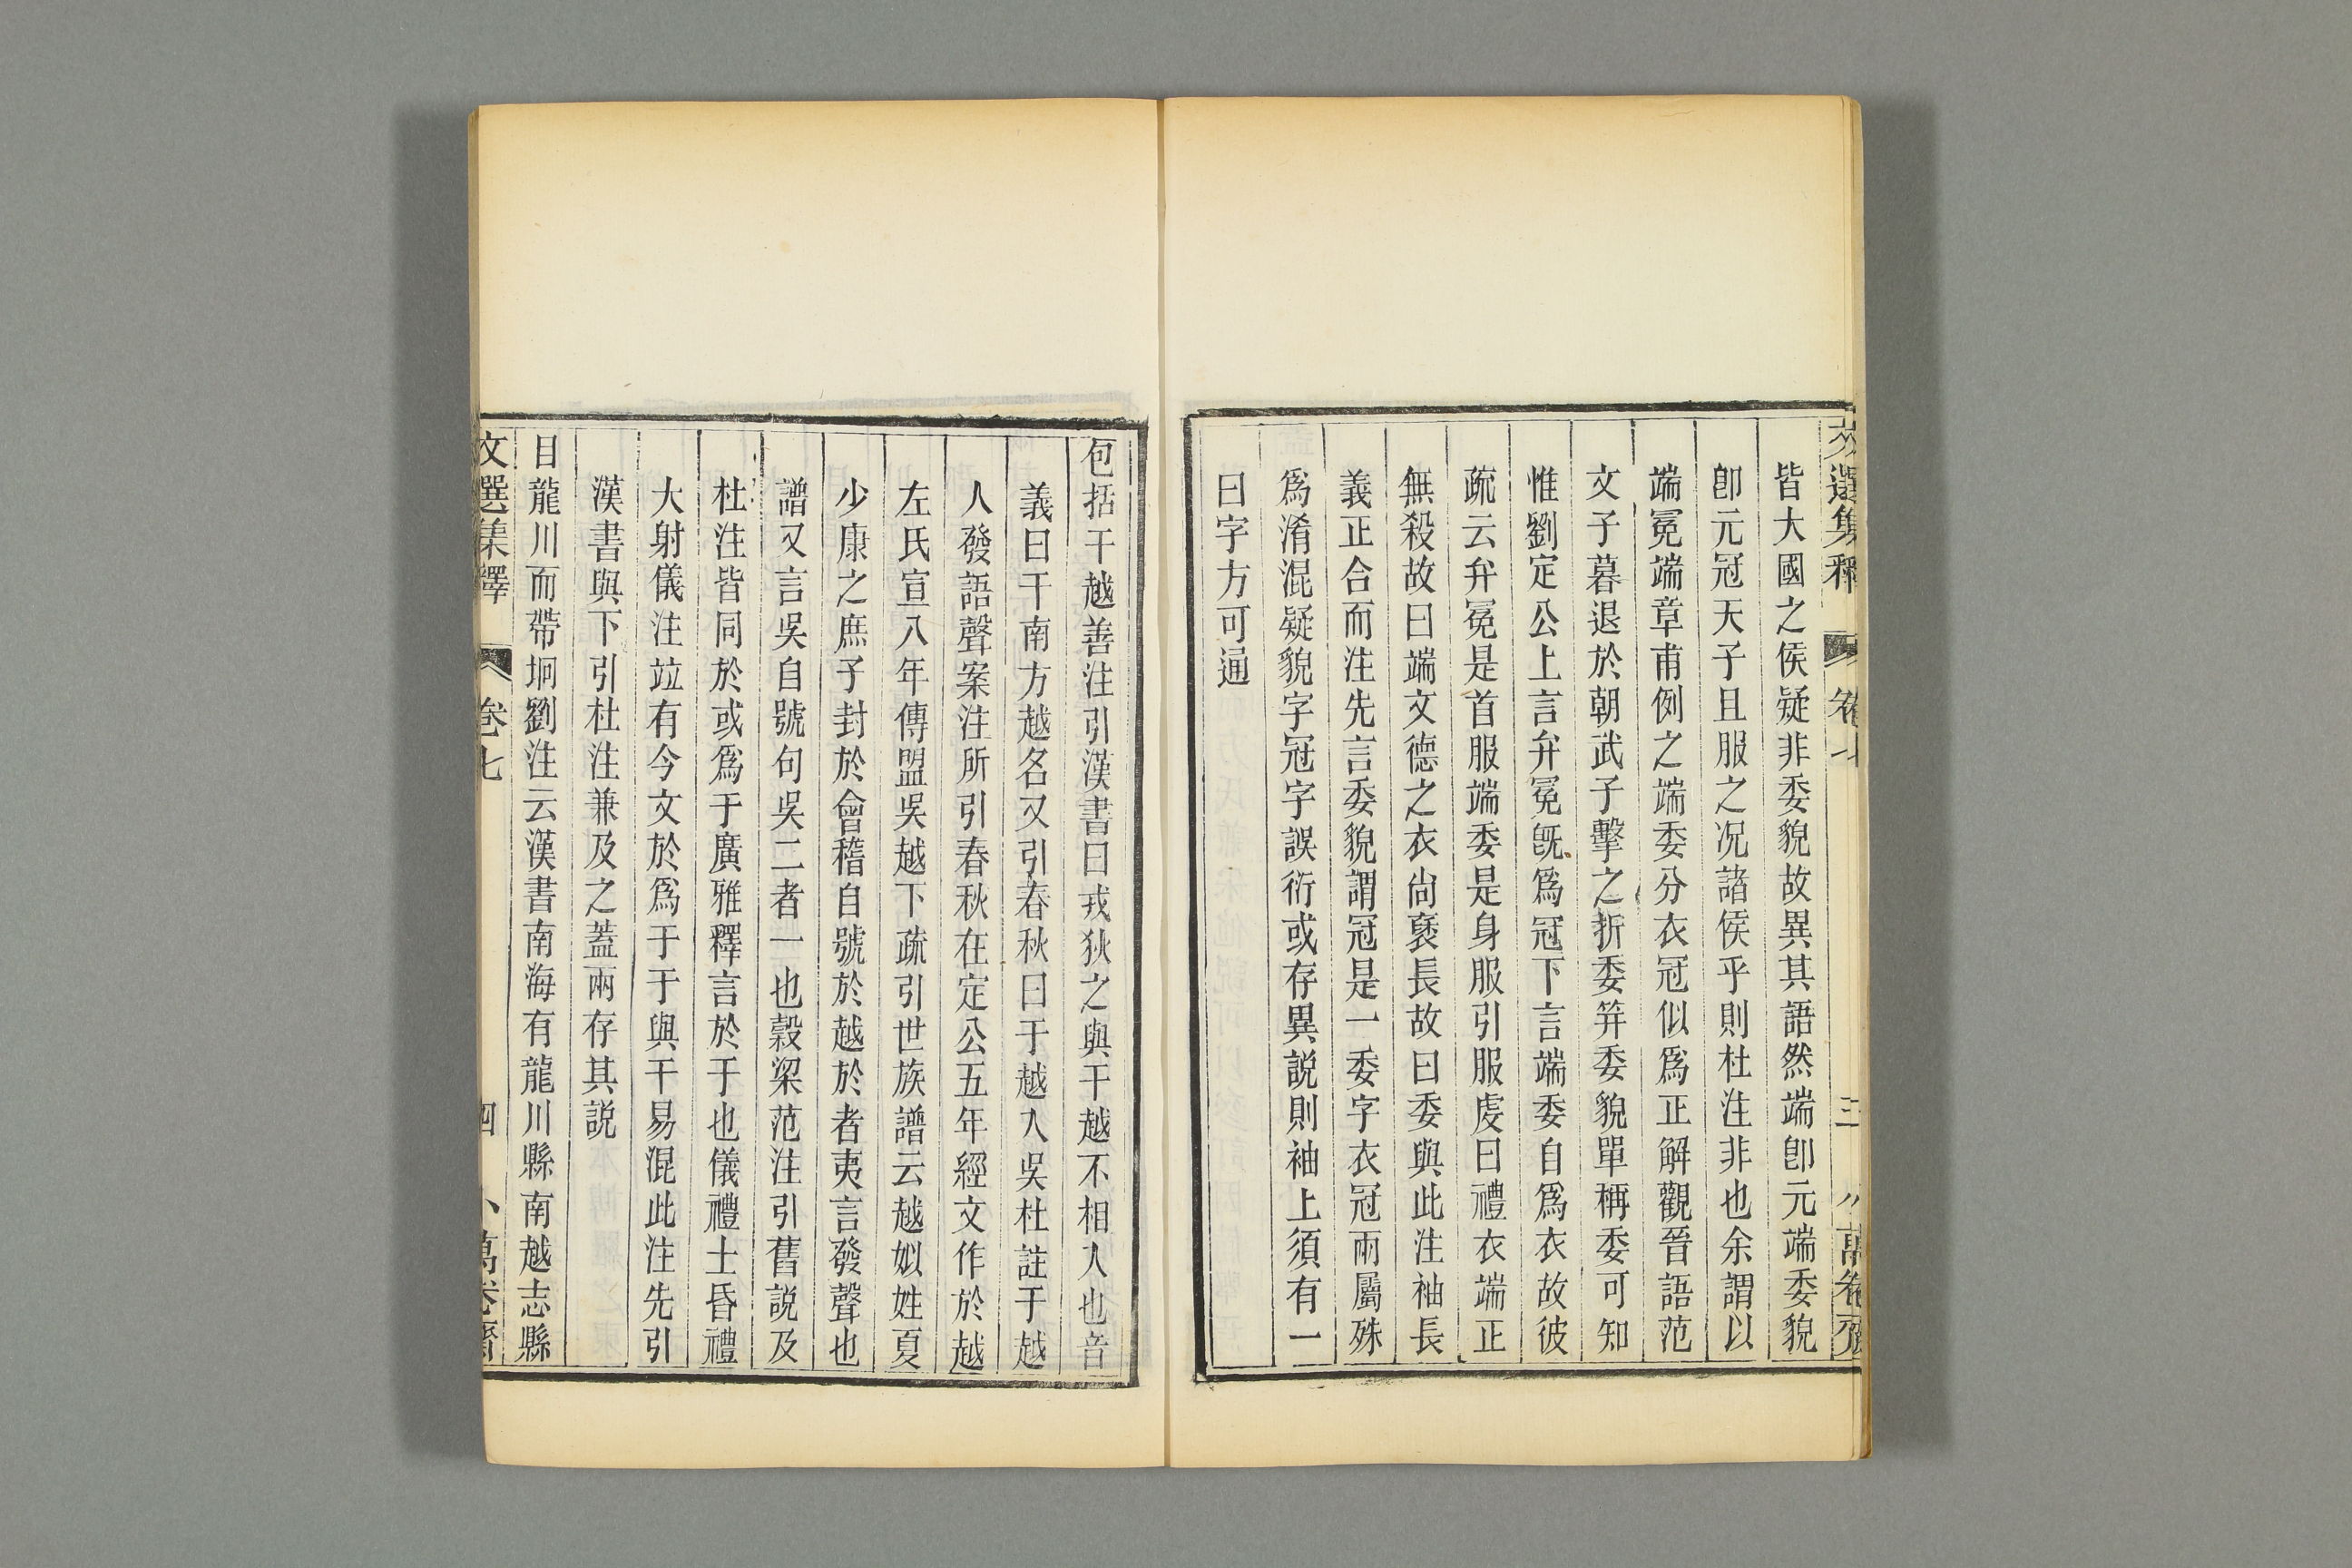 文選集釋 卷七 三 小萬卷齋
皆大國之侯疑非委貌故異其語然端卽元端委貌
卽元冠天子且服之況諸侯乎則杜注非也余謂以
端冕端章甫例之端委分衣冠似爲正解觀晉語范
文子暮退於朝武子擊之折委笄委貌單稱委可知
惟劉定公上言弁冕旣爲冠下言端委自爲衣故彼
疏云弁冕是首服端委是身服引服虔曰禮衣端正
無殺故曰端文德之衣尙襃長故曰委與此注袖長
義正合而注先言委貌謂冠是一委字衣冠兩屬殊
爲淆混疑貌字冠字誤衍或存異說則袖上須有一
曰字方可通
包括干越善注引漢書曰戎狄之與干越不相入也音
義曰干南方越名又引春秋曰于越入吳杜註于越
人發語聲案注所引春秋在定公五年經文作於越
左氏宣八年傳盟吳越下疏引世族譜云越姒姓夏
少康之庶子封於會稽自號於越於者夷言發聲也
譜又言吳自號句吳二者一也穀梁范注引舊說及
杜注皆同於或爲于廣雅釋言於于也儀禮士昏禮
大射儀注竝有今文於爲于于與干易混此注先引
漢書與下引杜注兼及之蓋兩存其說
目龍川而帶坰劉注云漢書南海有龍川縣南越志縣
文選集釋 卷七 四 小萬卷齋